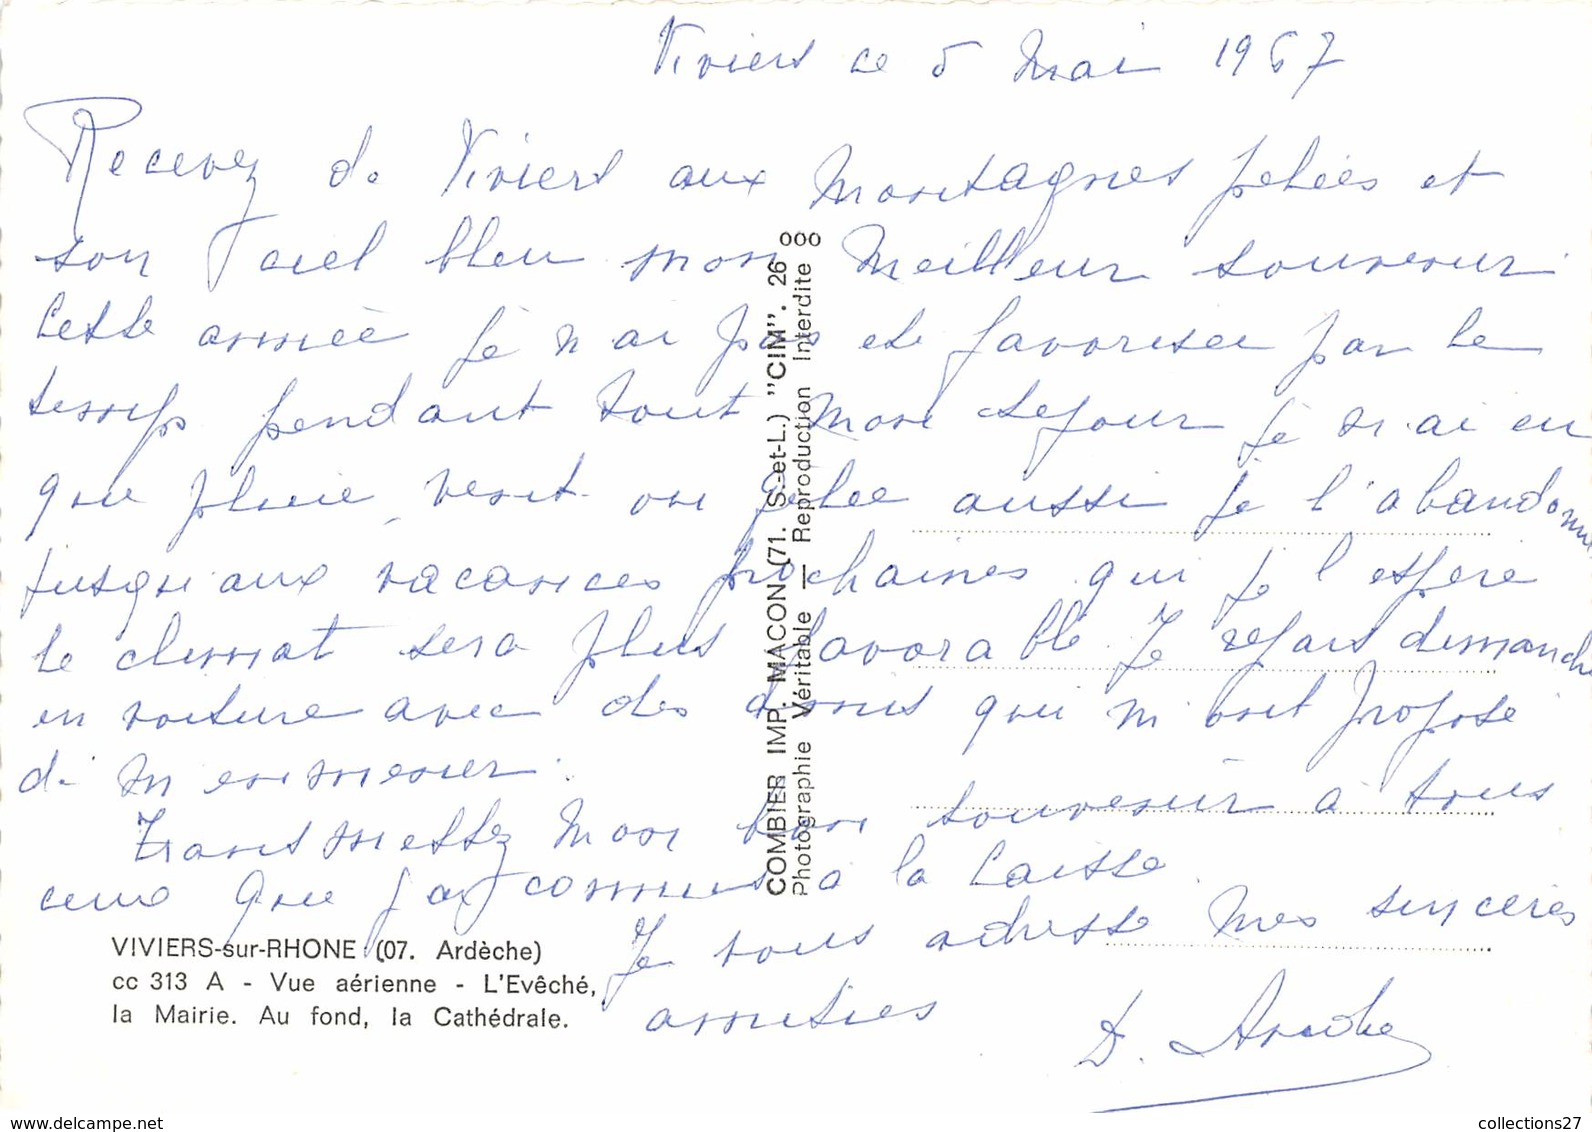 Viviers ce 5 Mai 1967
Recevez de Viviers aux Montagnes pelées et
son ciel bleu mon Meilleur souvenir.
Cette année je n'ai pas été favorisée par le
temps pendant tout mon séjour je n'ai eu
que pluie, vent ou gelée aussi je l'abandonne
jusqu'aux vacances prochaines qui je l'espère
le climat sera plus favorable Je repars dimanche
en voiture avec des amis qui m'ont proposé
de m'emmener.
Transmettez mon bon souvenir à tous
ceux que j'ai connus à la Caisse.
Je vous adresse mes sincères
amitiés
D.
COMBIER IMP. MACON (71. S.-et-L.) "CIM". 26 000
Photographie Véritable — Reproduction Interdite
VIVIERS-sur-RHONE (07. Ardèche)
cc 313 A - Vue aérienne - L'Evêché,
la Mairie. Au fond, la Cathédrale.
collections27